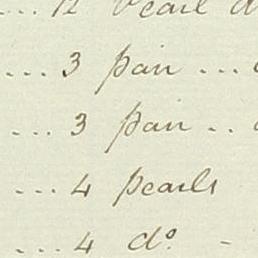 ... 12 Pearl d
... 3 pair ...
... 3 pair ..
... 4 pearls
... 4 dº. -